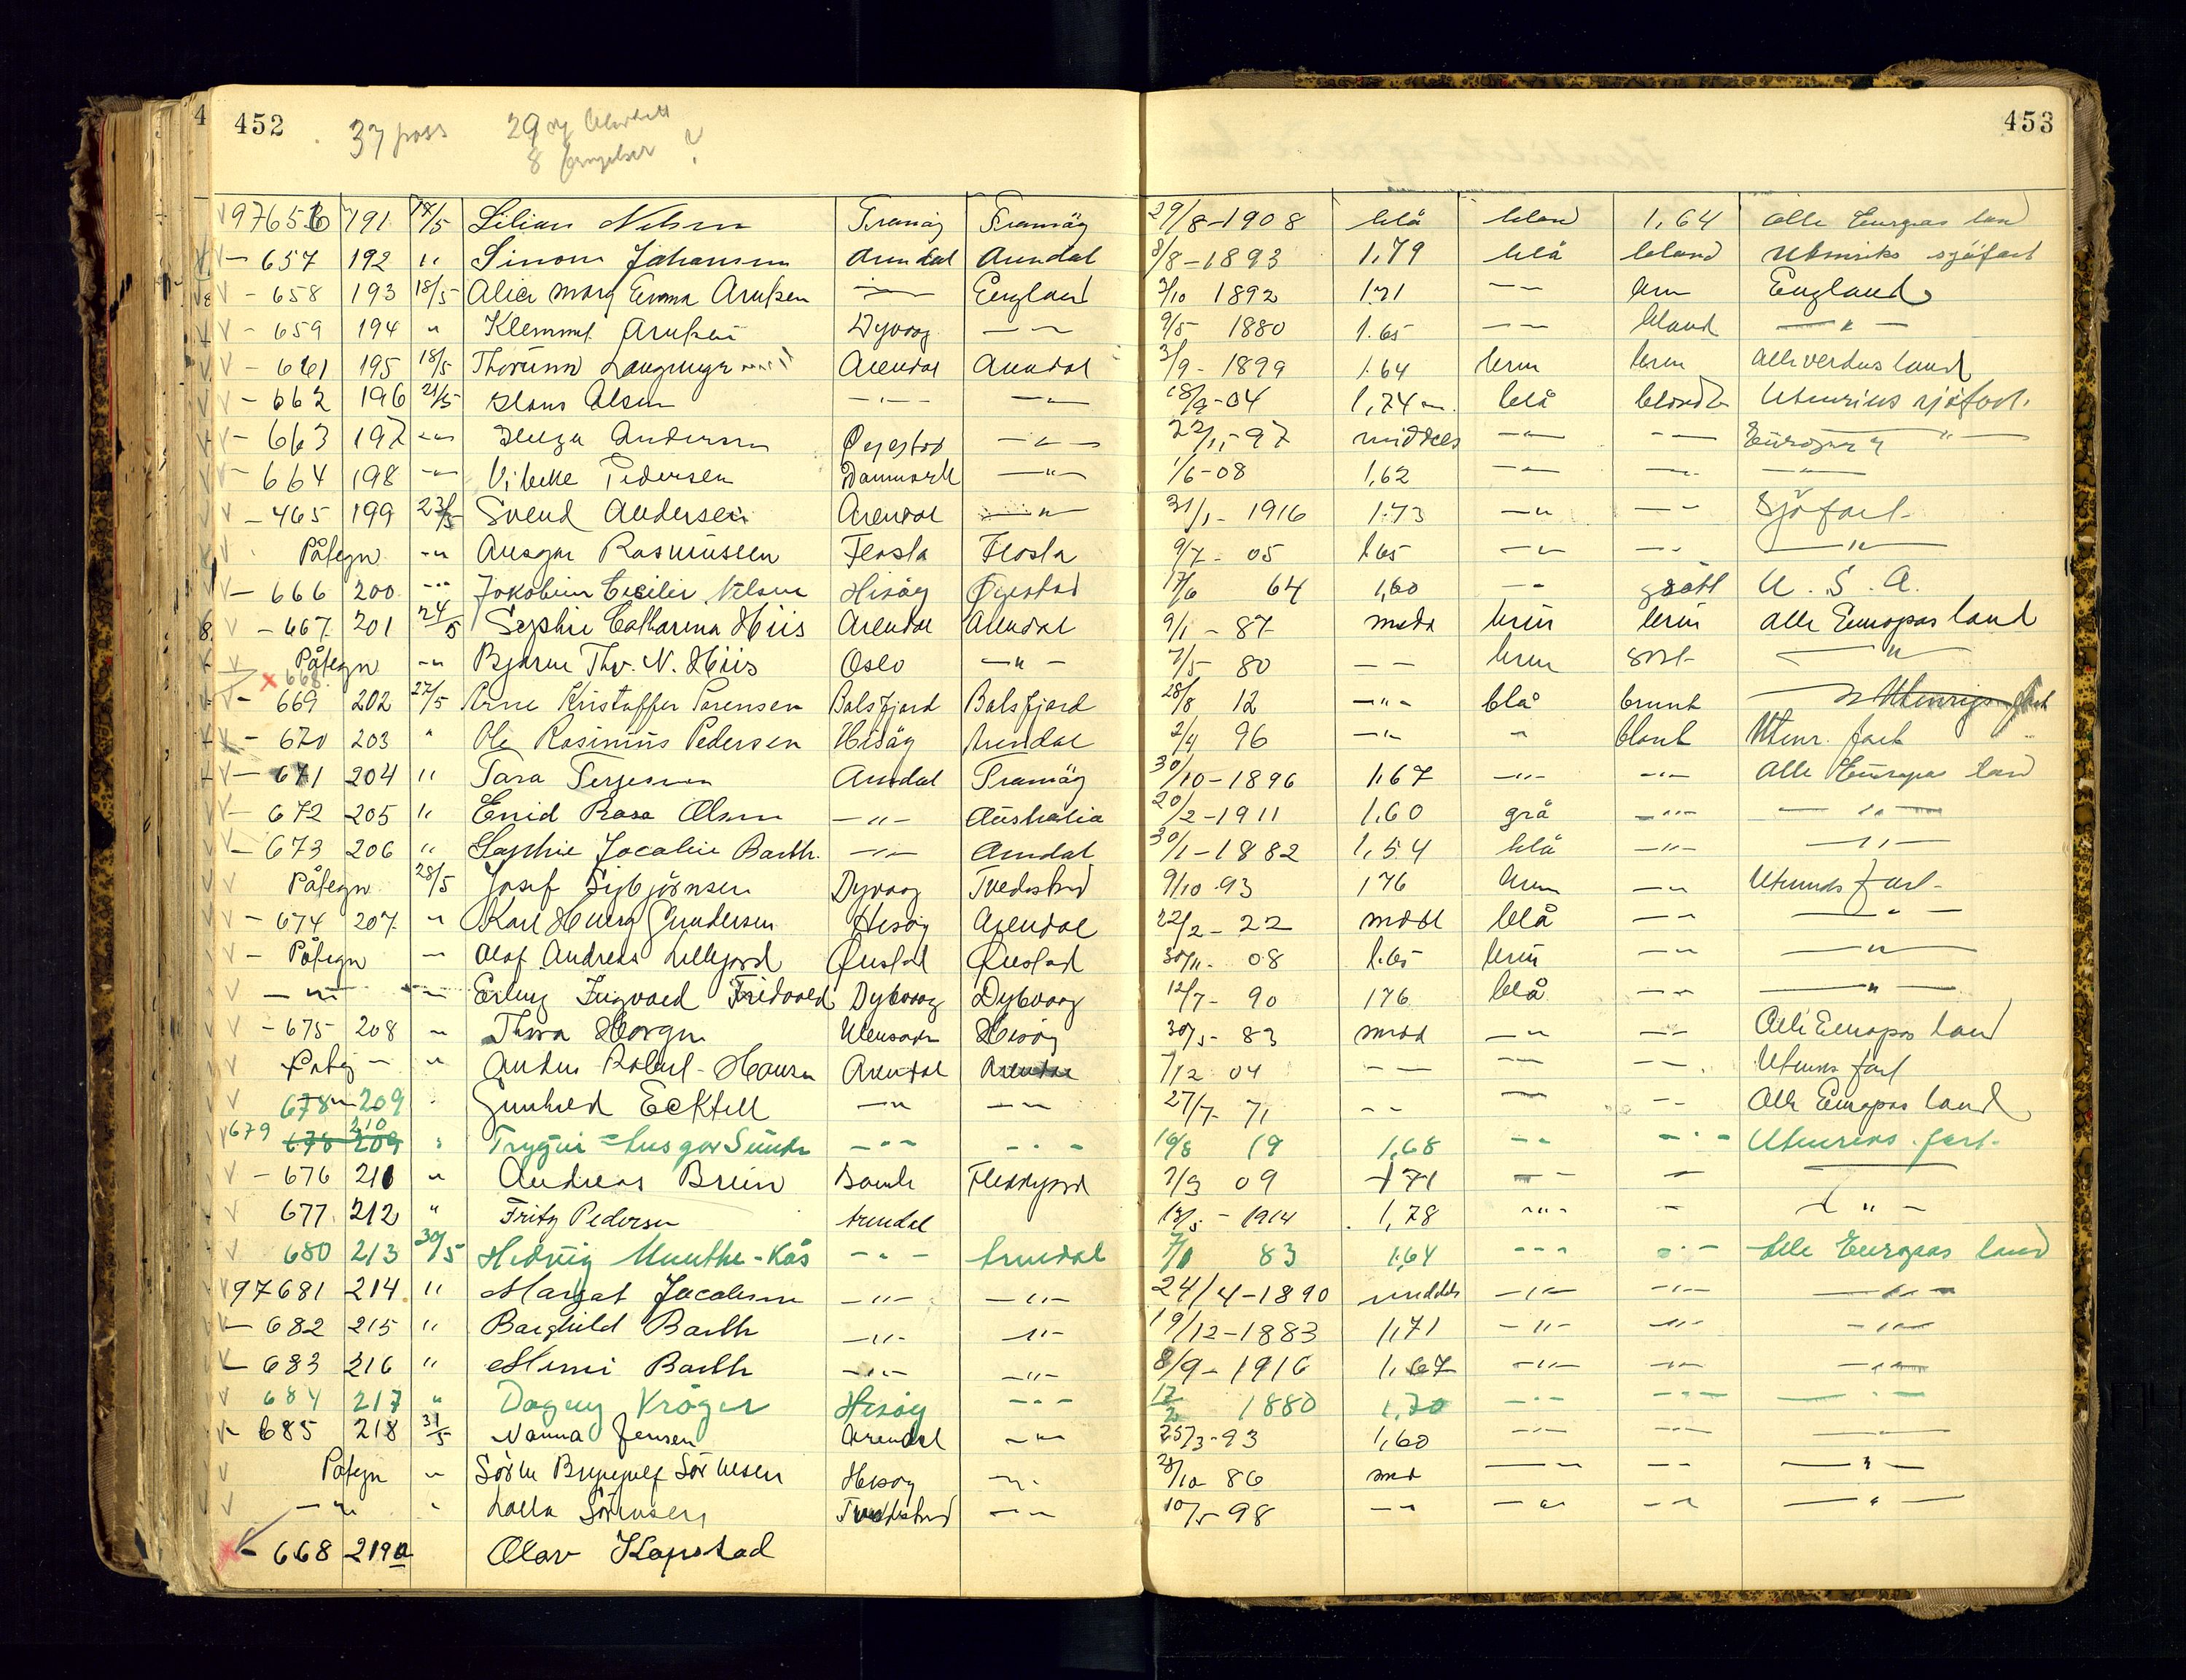 452
453
37 pass 29
8
97656 191 18/5 Lilian Nilsen Tromöy Tromöy 29/8-1908 blå blond 1,64 alle Europas land
- 657 192 " Simon Johansen Arendal Arendal 8/8-1893 1,79 blå blond Utenriks sjöfart
- 658 193 18/5 Alice Mary Emma England 3/10 1892 1.71 - - brun England
- 659 194 " Dyvaag - - 9/5 1880 1.65 - - blond - " -
- 661 195 18/5 Thorunn Arendal Arendal 3/9 - 1899 1.64 brun brun alle verdens land
- 662 196 21/5 Klaus Olsen - " - - " - 18/9-04 1,74 m. blå blondt Utenriks sjöfart.
- 663 197 - " - Helga Andersen Øyestad - " - 22/11-97 middels - " - - - Europa
- 664 198 - " - Vibeke Pedersen Danmark - " - 1/6-08 1,62 - " - - " - - " -
- 465 199 23/5 Svend Andersen Arendal - " - 31/1 - 1916 1.73 - " - - Sjöfart -
Påtegn - " Ansgar Rasmussen Flosta Flosta 9/7 - 05 1.65 - " - - - " -
- 666 200 - " - Jakobine Cecilie Nilsen Hisöy Øyestad 17/6 64 1,60 - " grått U. S. A.
- 667 201 24/5 Sophie Catharina Hiis Arendal Arendal 9/1 - 87 midd brun brun alle Europas land
Påtegn - " Bjarne Thv. N. Hiis Oslo - " - 7/5 80 - - brun sort - " -
x 668.
- 669 202 27/5 Arne Kristoffer Sörensen Balsfjord Balsfjord 28/8 12 - " - blå brunt - " Utenrigs fart
- 670 203 " Ole Rasmus Pedersen Hisöy Arendal 2/4 96 - " - " blont Utenr. fart
- 671 204 " Tara Terjesen Arendal Tromöy 30/10-1896 1,67 - " - - " - alle Europas land
- 672 205 " Enid Rosa Olsen - " - Australia 20/2-1911 1,60 grå - " - - " -
- 673 206 " Sophie Jacobine Barth. - " - Arendal 30/1-1882 1,54 blå - " - - " -
Påtegn 28/5 Josef Sigbjörnsen Dyvaag Tvedestrand 9/10 93 176 brun - " Utenriks fart -
- 674 207 " Karl Henry Gundersen Hisöy Arendal 22/2 - 22 midd blå - " - " -
- Påtegn - " Olaf Andreas Lillejord Øiestad Øiestad 30/11 - 08 1.65 brun - " - " -
- " - - " Erling Ingvald Fridvald Dybvaag Dybvaag 12/7 - 90 176 blå - " - " -
- 675 208 " Thora Horgen Hisöy 30/5 - 83 midd - " - " Alle Europas land
Påteg - " Robert Hansen Arendal Arendal 7/12 04 - - - " - - Utenriks fart
678 - 209 Gunhild Eckfell - " - " 27/7 71 - - - " - - Alle Europas land
679 678 209 210 " Trygve Ansgar Sunde - " - - " - 16/8 19 1,68 - " - " - Utenriks fart -
- 676 210 " Andreas Bruun Bamle 7/3 09 1 71 - " - - -
677. 212 " Fritz Pedersen Arendal 13/5 - 1914 1,78 - " - - - " -
680 213 30/5 Hedvig Munthe-Kås - " - Arendal 83 1,64 - " - - " - Alle Europas land
97681 214. " Margot Jacobsen - " - - " - 24/4-1890 middels - " - - " - - " -
- 682 215 " Borghild Barth - " - - " - 19/12-1883 1,71 - " - - " - - " -
- 683 216 " Mimi Barth - " - - " - 8/9-1916 1,67 - " - - " - - " -
684 217 " Dagny Kröger Hisöy - " - 12/2 1880 1,70 - " - - " - - " -
- 685 218 31/5 Nanna Jensen Arendal - " - 25/3-93 1,60 - " - - " - - " -
Påtegn - " Hisöy - " 86 midd - " - - - - " -
- " " Lalla Sörensen Tvedestrand - " 10/5-98 - " - " - - " - " -
- 668 219a Olav Kopstad